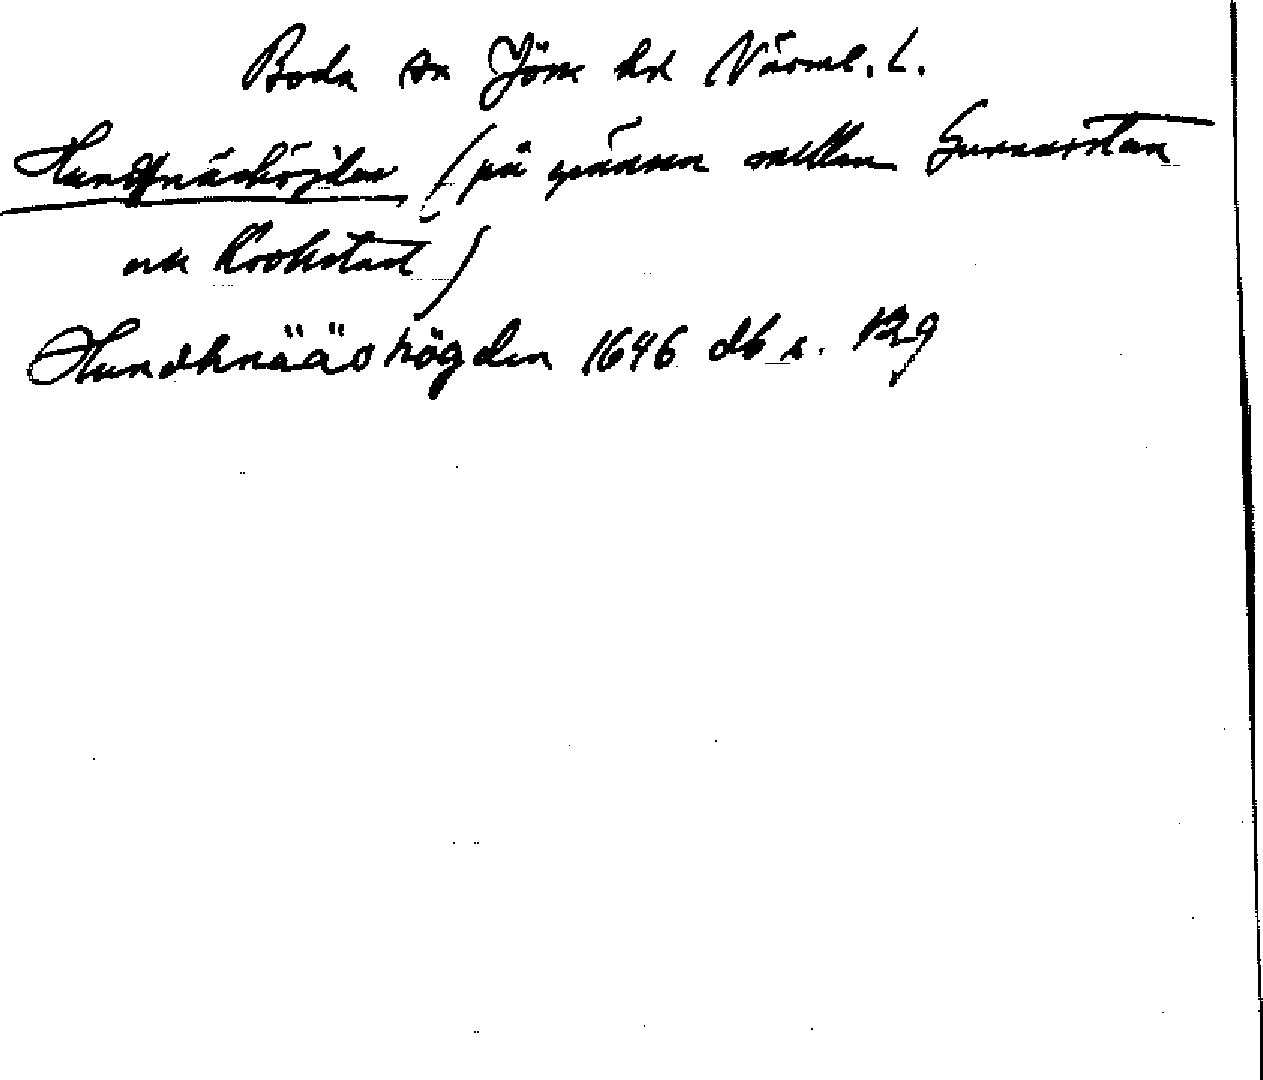 Boda sn Jöse hd Värml. L.
Hundnäshöjden (på gränsen mellan Gunnarstan
och Krokstad)
Hundhnääs högden 1646 db s. 129